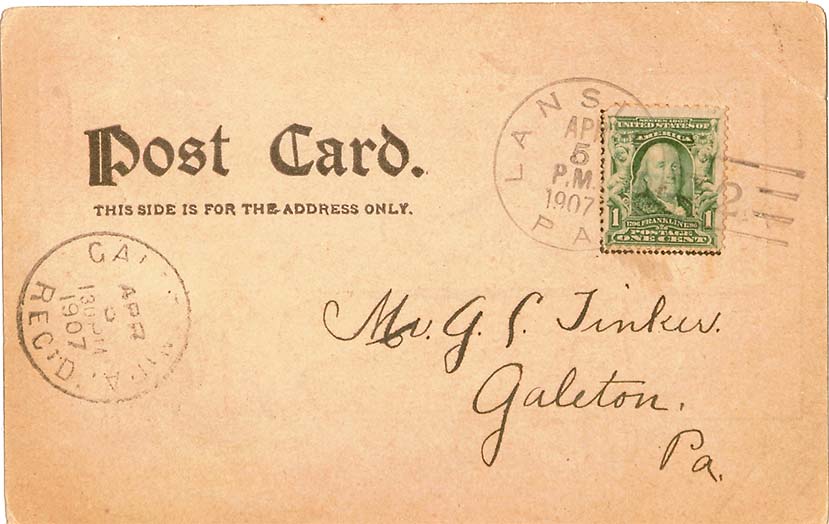 Post Card.
THIS SIDE IS FOR THE ADDRESS ONLY.
LANS
APR
5
P.M.
1907
PA
SERIES 1902
UNITED STATES OF
AMERICA
1 1
FRANKLIN
POSTAGE
ONE CENT
2
GAL PA.
APR
1907
REC'D.
Mr. G. S. Tinker.
Galeton,
Pa.